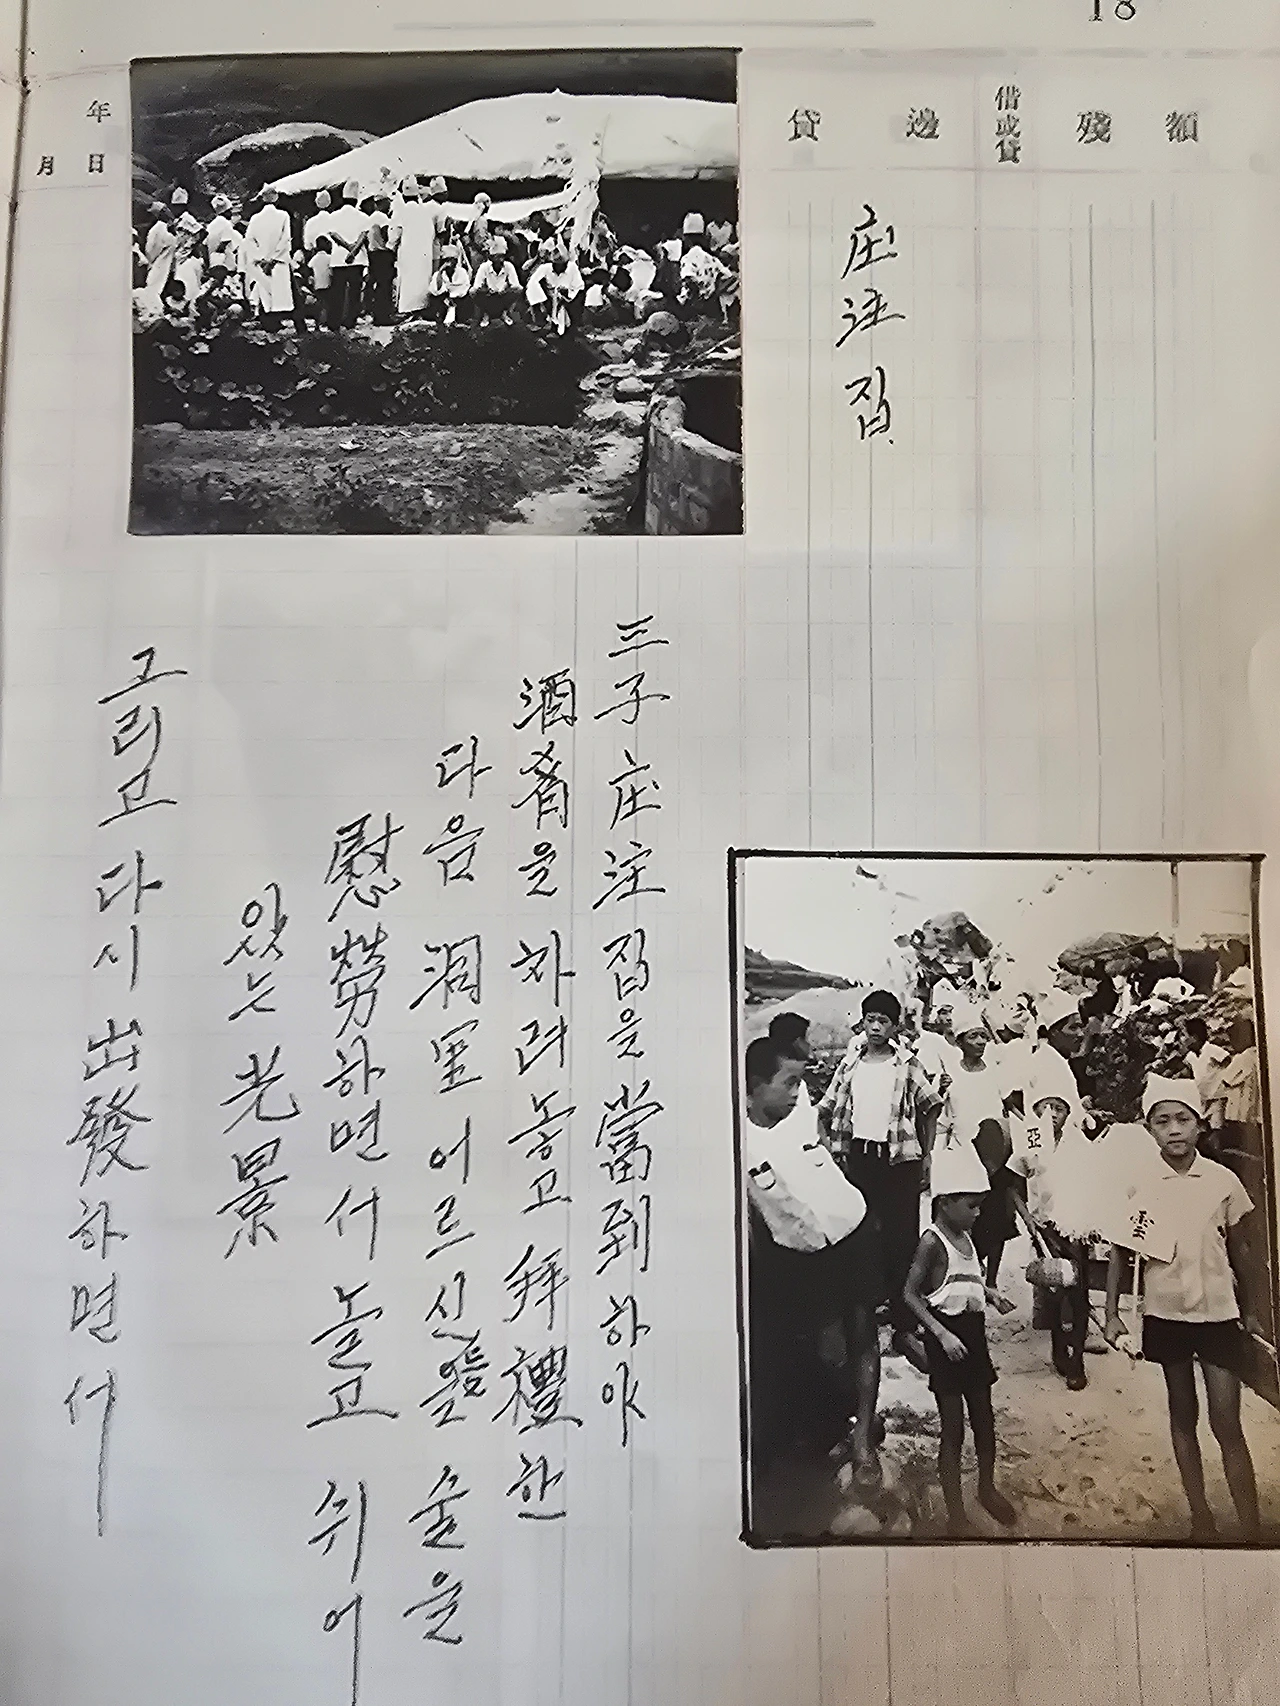 18
年
月 日
貸 邊 借或貸 殘 額
庄注집
三子庄注집을 當到하야
酒肴을 차려놓고 拜禮한
다음 洞里 어르신들을 술을
慰勞하면서 놀고 쉬어
있는 光景
그리고 다시 出發하면서
亞
雲